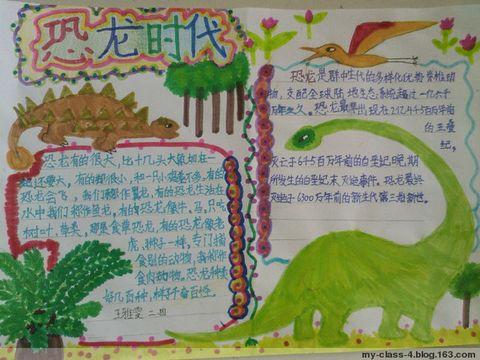 恐龙时代
恐龙有的很大,比十几头大象加在一
起还要大,有的却很小,和一只小鸡差不多,有的
恐龙会飞,我们称作翼龙,有的恐龙生活在
水中我们称作鱼龙,有的恐龙像牛、马,只吃
树叶、草类,那是食草恐龙,有的恐龙像老
虎、狮子一样,专门捕
食别的动物,我们称作
食肉动物。恐龙种类
好几百种,样子千奇百怪。
王雅雯 二.四
恐龙是群中生代的多样化优势脊椎动
物,支配全球陆地生态系统超过一亿六千
万年之久。恐龙最早出现在2亿4千5百万年前
的三叠
纪,
灭亡于6千5百万年前的白垩纪晚期
所发生的白垩纪末灭绝事件。恐龙最终
灭绝于6300万年前的新生代第三卷新世。
my-class-4.blog.163.com